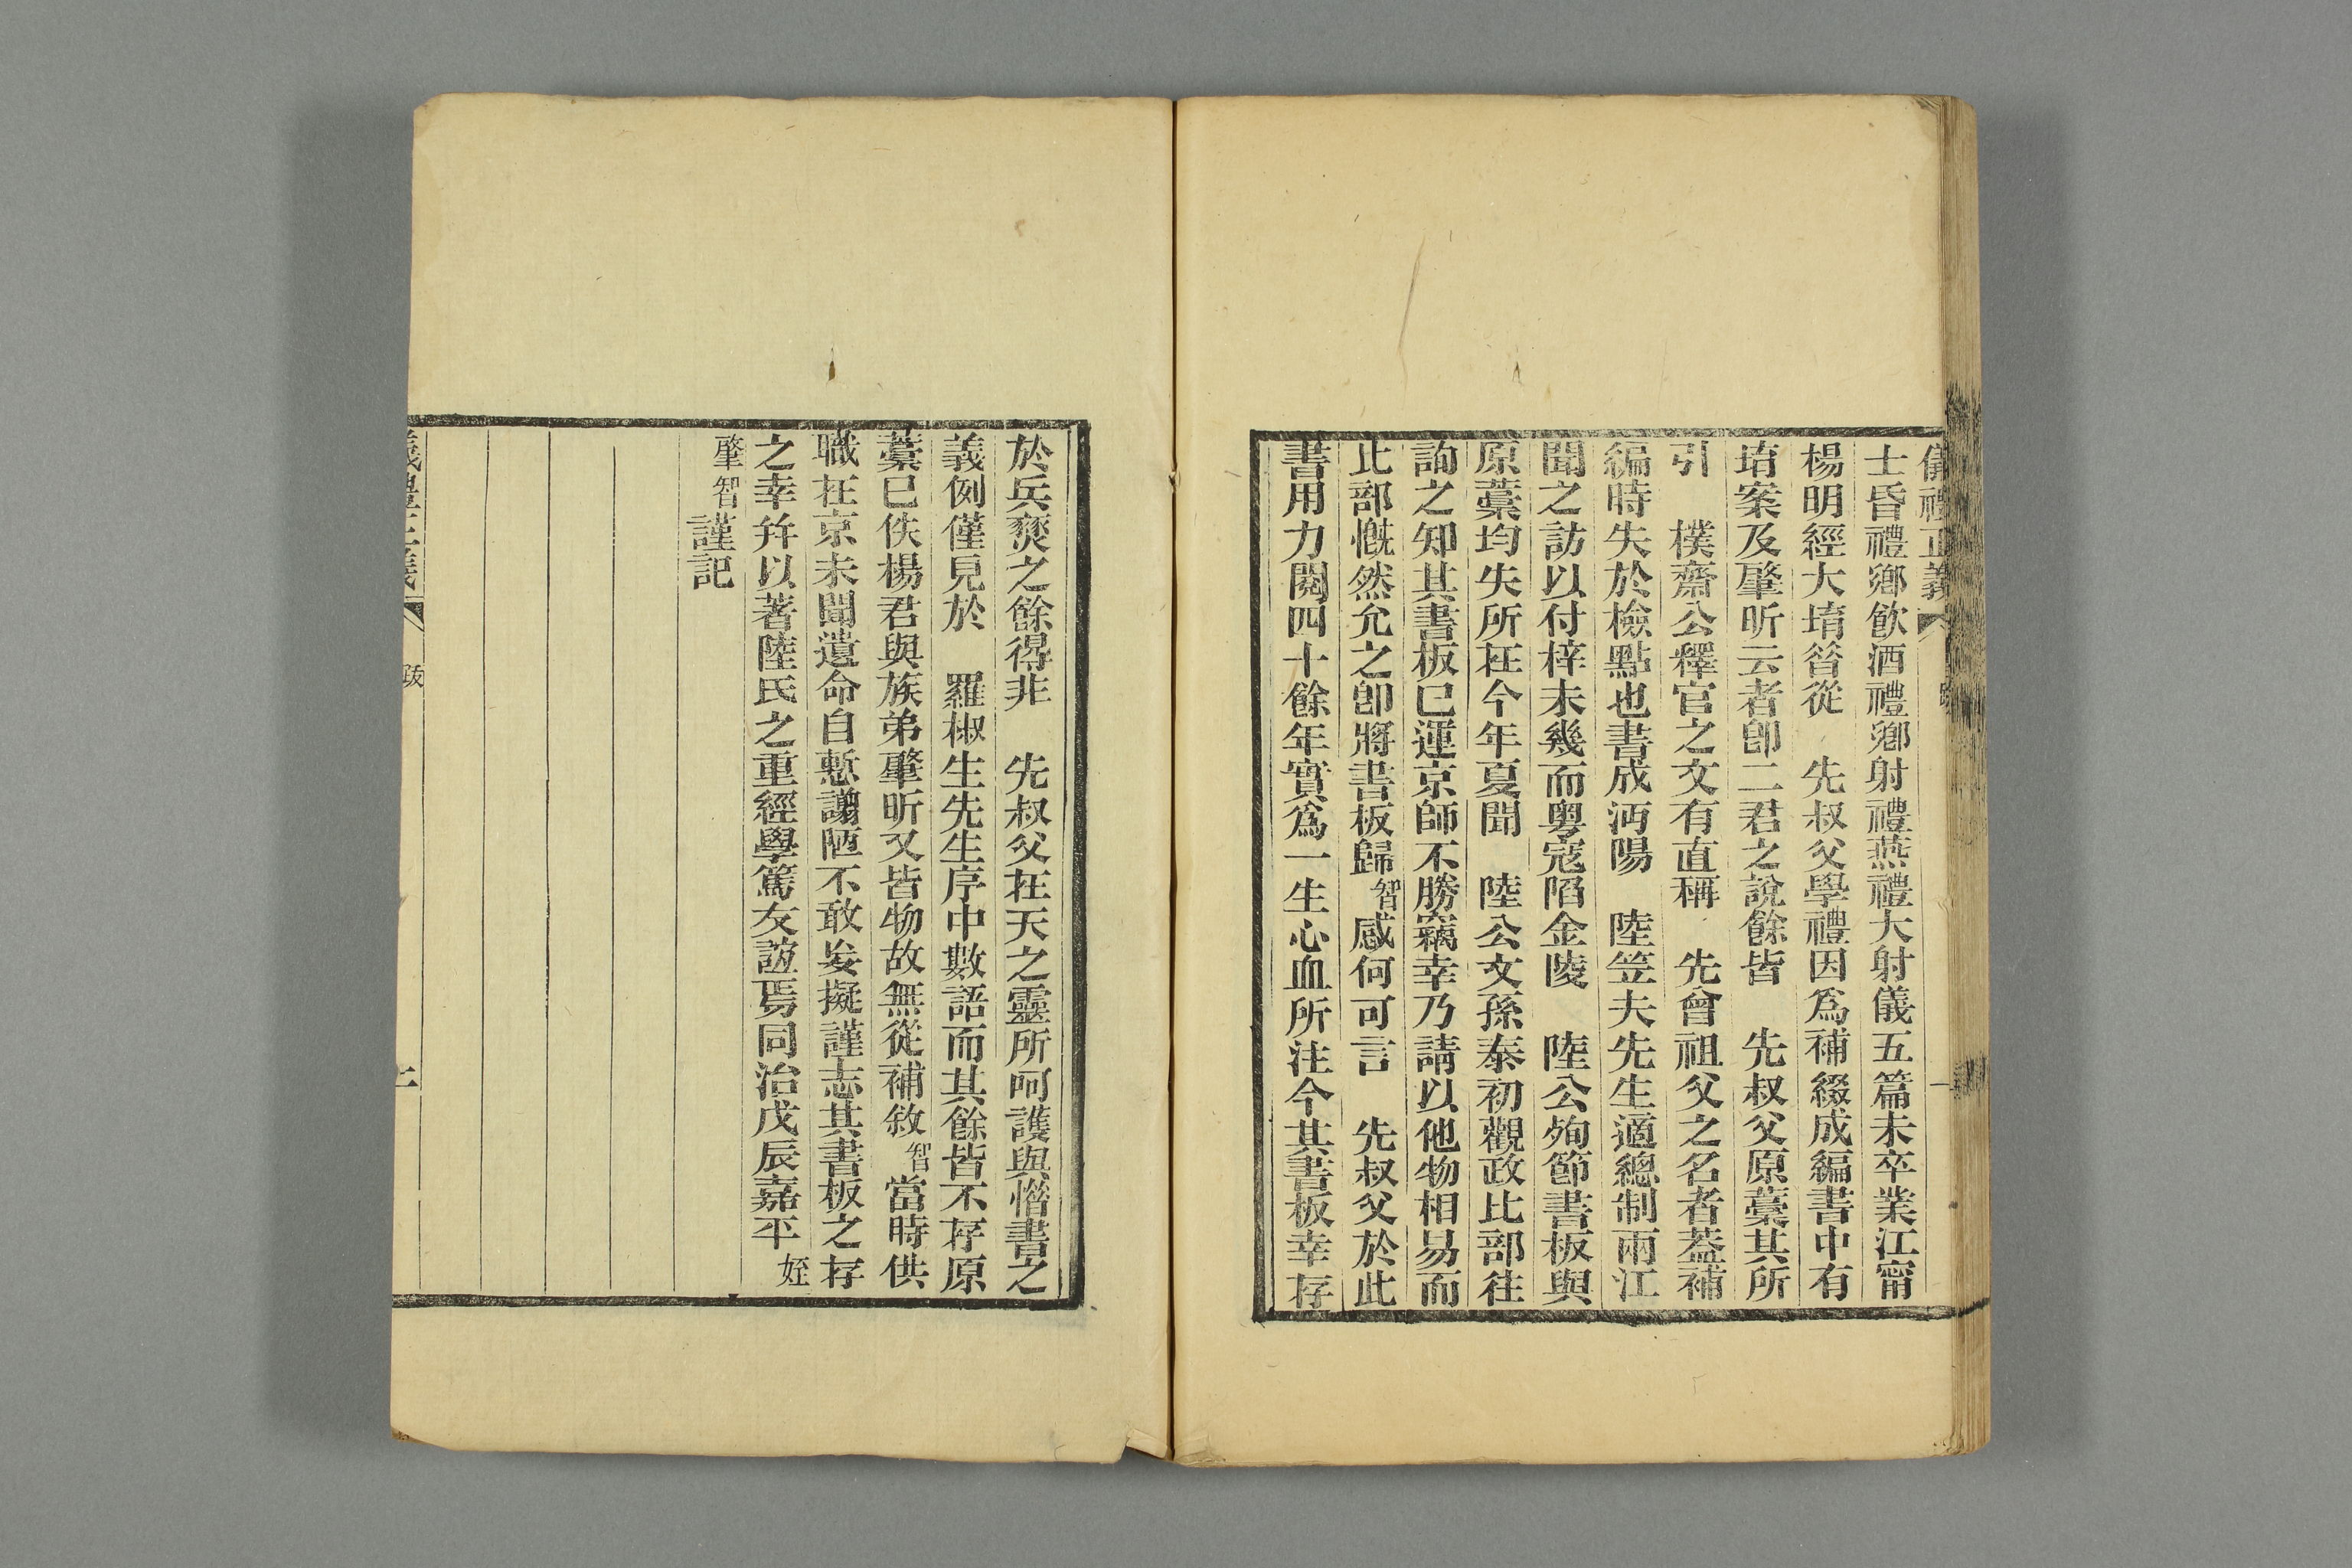 儀禮正義
士昏禮鄉飲酒禮鄉射禮燕禮大射儀五篇未卒業江甯
楊明經大堉曾從　先叔父學禮因爲補綴成編書中有
堉案及肈昕云者卽二君之說餘皆　先叔父原藁其所
引　樸齋公釋官之文有直稱　先曾祖父之名者葢補
編時失於檢點也書成沔陽　陸笠夫先生適總制兩江
聞之訪以付梓未幾而粤寇陷金陵　陸公殉節書板與
原藁均失所在今年夏聞　陸公文孫泰初觀政比部往
詢之知其書板已運京師不勝竊幸乃請以他物相易而
比部慨然允之卽將書板歸智感何可言　先叔父於此
書用力閱四十餘年實爲一生心血所注今其書板幸存
於兵燹之餘得非　先叔父在天之靈所呵護與惜書之
義例僅見於　羅椒生先生序中數語而其餘皆不存原
藁已佚楊君與族弟肈昕又皆物故無從補敘智當時供
職在京未聞遺命自慙謭陋不敢妄擬謹志其書板之存
之幸幷以著陸氏之重經學篤友誼焉同治戊辰嘉平姪
肈智謹記
儀禮正義　跋　二